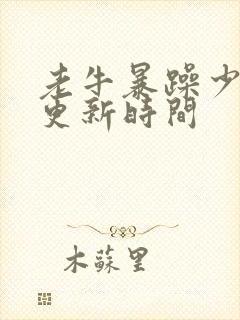 老牛暴躁少
更新時間
木蘇里